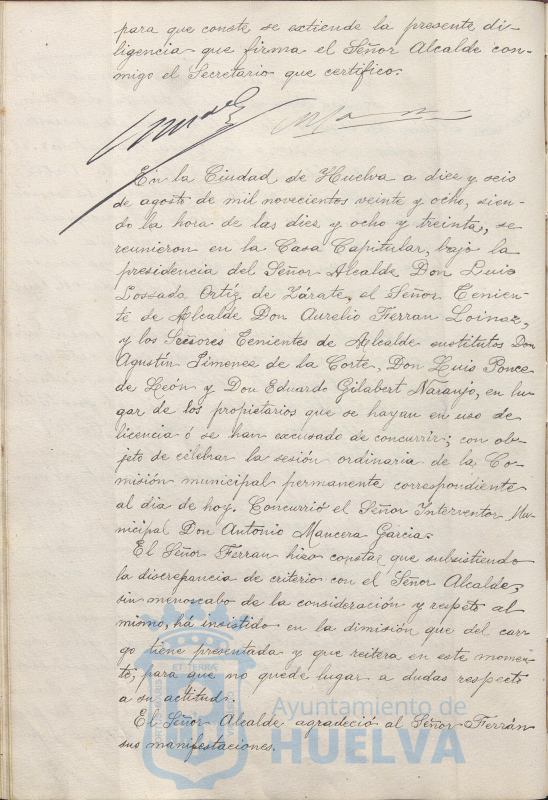 para que conste se extiende la presente di-
ligencia que firma el Señor Alcalde con-
migo el Secretario que certifico.
En la Ciudad de Huelva a diez y seis
de agosto de mil novecientos veinte y ocho, sien-
do la hora de las diez y ocho y treinta, se
reunieron en la Casa Capitular, bajo la
presidencia del Señor Alcalde Don Luis
Lossada Ortiz de Zárate, el Señor Tenien-
te de Alcalde Don Aurelio Ferran Loinaz,
y los Señores Tenientes de Alcalde sustitutos Don
Agustín Jimenez de la Corte, Don Luis Ponce
de León y Don Eduardo Gilabert Naranjo, en lu-
gar de los propietarios que se hayan en uso de
licencia ó se han excusado de concurrir; con ob-
jeto de celebrar la sesión ordinaria de la Co-
misión municipal permanente correspondiente
al dia de hoy. Concurrió el Señor Interventor Mu-
nicipal Don Antonio Mancera Garcia.
El Señor Ferran hizo constar que subsistiendo
la discrepancia de criterio con el Señor Alcalde,
sin menoscabo de la consideración y respeto al
mismo, há insistido en la dimisión que del car-
go tiene presentada y que reitera en este momen-
to, para que no quede lugar a dudas respecto
a su actitud.
El Señor Alcalde agradeció al Señor Ferrán
sus manifestaciones.
Ayuntamiento de
HUELVA